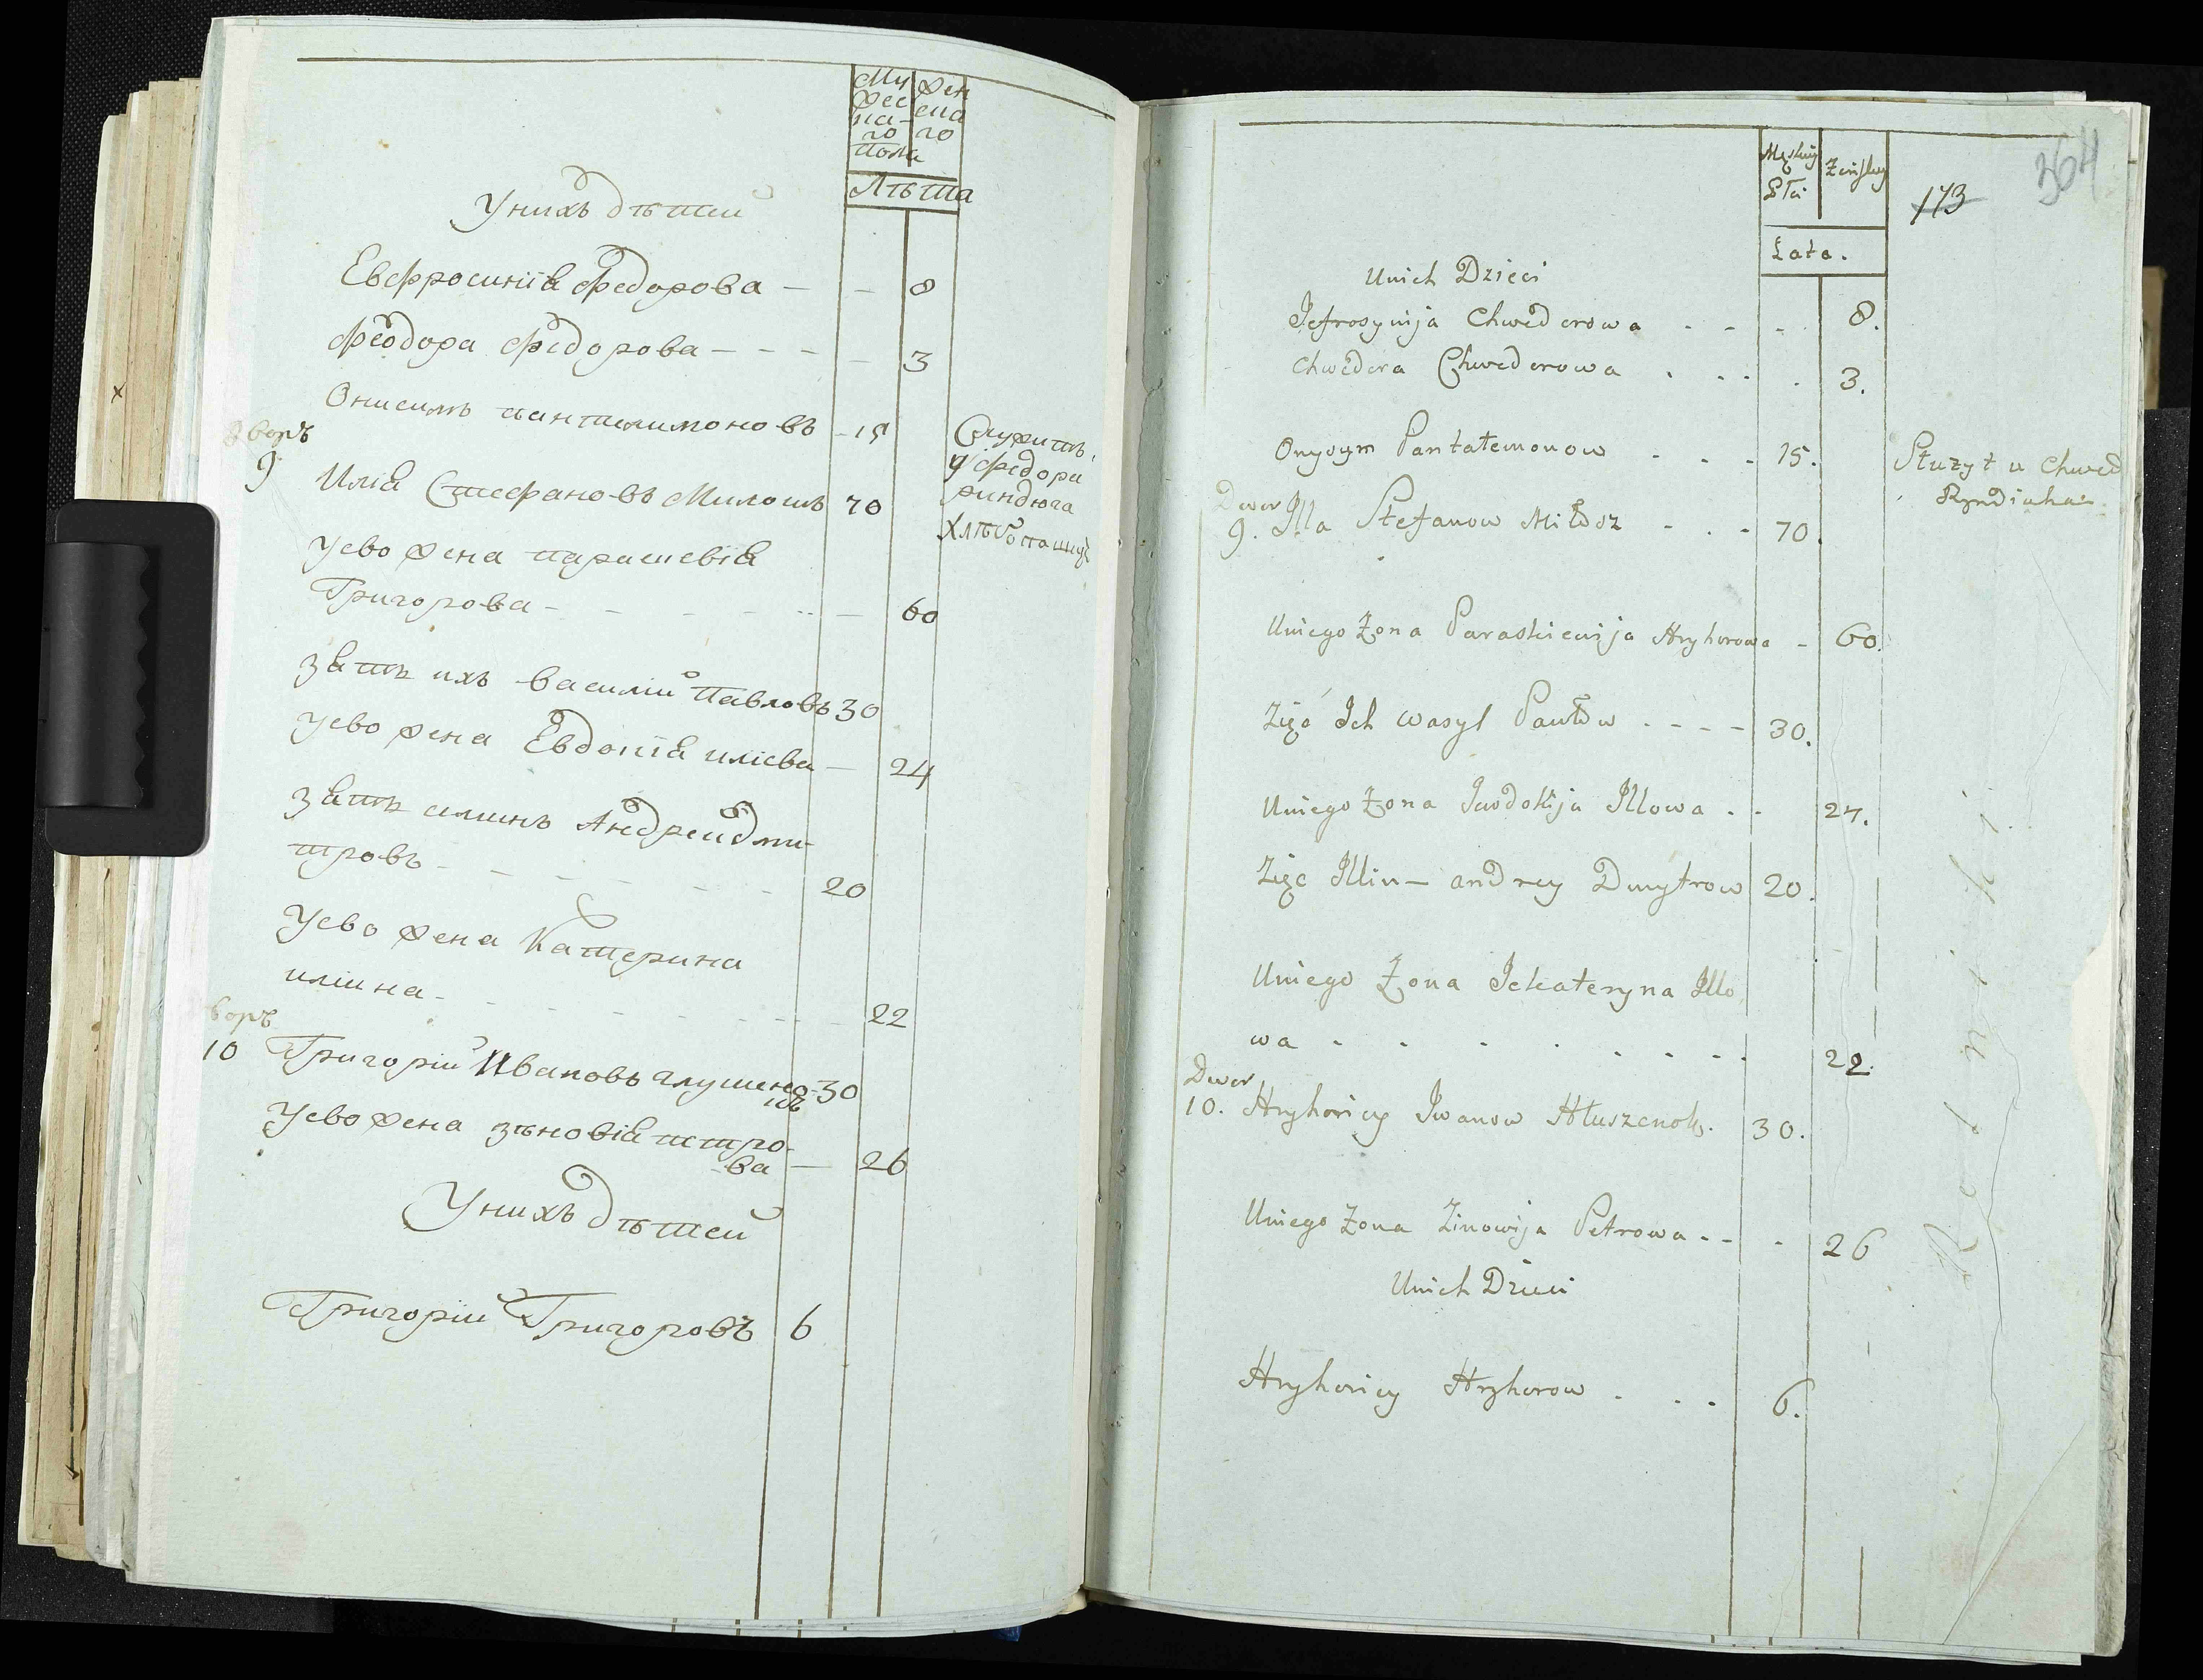 Му Жен
жес ска
ка- го
го
пола
Лѣта
У нихъ дѣтей
Евфросинія Федорова — — 8
Феодора Федорова — — — — 3
Онисимъ Пантелимоновъ - 15
Служитъ
у Федора
Риндюга
дворъ
9 Илія Стефановъ Милошъ 70
Хлѣбопашцѣ
У ево жена Параскевія
Григорова — — — — 60
Зять ихъ Василій Павловъ 30
У ево жена Евдокія Иліева — 24
Зять Илинъ Андрей Дми-
тровъ - - - - - 20
У ево жена Катерина
Иліина - - - - - 22
воръ
10 Григорій Ивановъ Глушено- 30
къ
У ево жена Зѣновія Петро-
-ва — 26
У нихъ дѣтей
Григорій Григоровъ 6
364
173
Męskiey Żeńskey
Płci
Lata.
U nich Dzieci
Jefrosynija Chwedorowa - - - 8.
Chwedora Chwedorowa . . . . 3.
Onysym Pantałemonow - - - 15.
Służył u Chwed
Ryndiuha
Dwor
9. Illa Stefanow Miłosz - - 70.
U niego Żona Paraskiewija Hryhorowa - 60.
Zięć Ich Wasyl Pawłow - - - - 30.
U niego Żona Jwdokija Illowa . - 24.
Zięć Illin — Andrey Dmytrow 20.
U niego Żona Jekateryna Illo
wa - - - - - - - - 22.
Dwor
10. Hryhoriey Iwanow Hłuszenok. 30.
U niego Żona Zinowija Petrowa - - - 26
U nich Dzieci
Hryhoriey Hryhorow . . . 6.